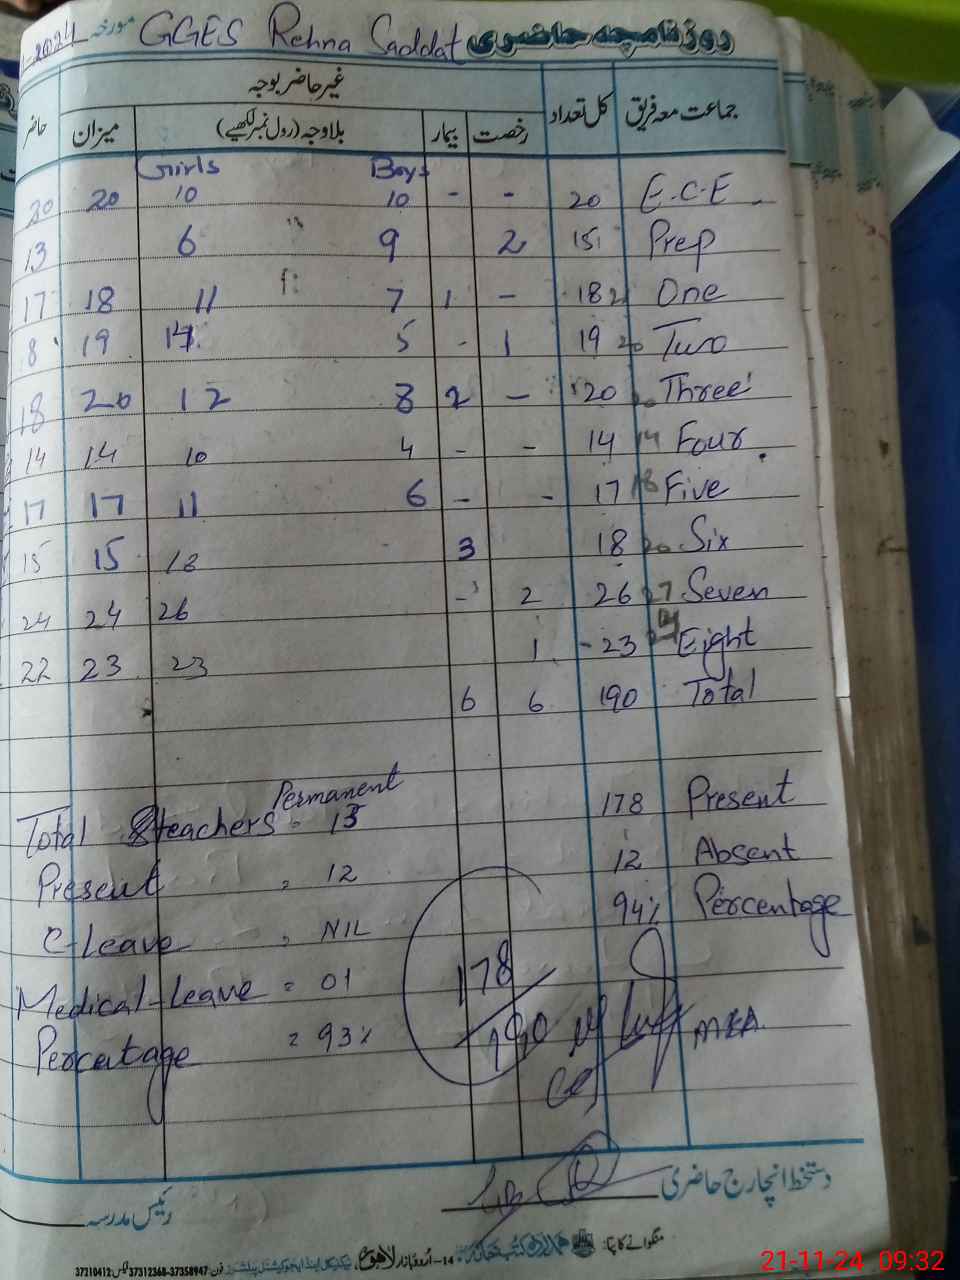 -2024 مورخہ GGES Rehna Saddat روزنامچہ حاضری
جماعت معہ فریق کل تعداد غیر حاضر بوجہ حاضر
رخصت بیمار بلاوجہ (رول نمبر لکھیے) میزان
Girls Boys
20 20 10 10 - - 20 E.C.E
13 6 " 9 2 15 Prep
17 18 11 7 1 - 18 One
8 19 14 5 - 1 19 20 Two
18 20 12 8 2 - 20 Three
14 14 10 4 - - 14 14 Four
17 17 11 6 - - 17 18 Five
15 15 18 3 18 20 Six
24 24 26 - 2 26 27 Seven
22 23 23 1 - 23 Eight
6 6 190 Total
Permanent
Total teachers = 13
178 Present
Present = 12
12 Absent
C-Leave = NIL
94% Percentage
Medical-Leave = 01
178
190
Percetage = 93%
دستخط انچارج حاضری
رئیس مدرسہ
منگوانے کا پتہ:
14-اُردو بازار لاہور
فون: 37358947-37312368 فیکس: 37210412
21-11-24 09:32